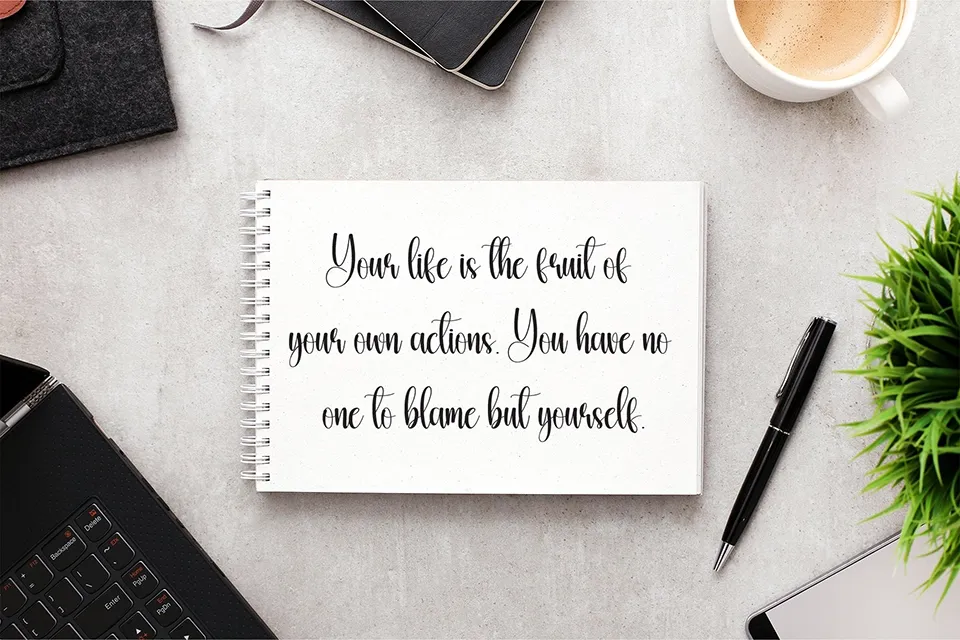 Your life is the fruit of
your own actions. You have no
one to blame but yourself.
Delete
Backspace
Enter
PgUp
PgDn